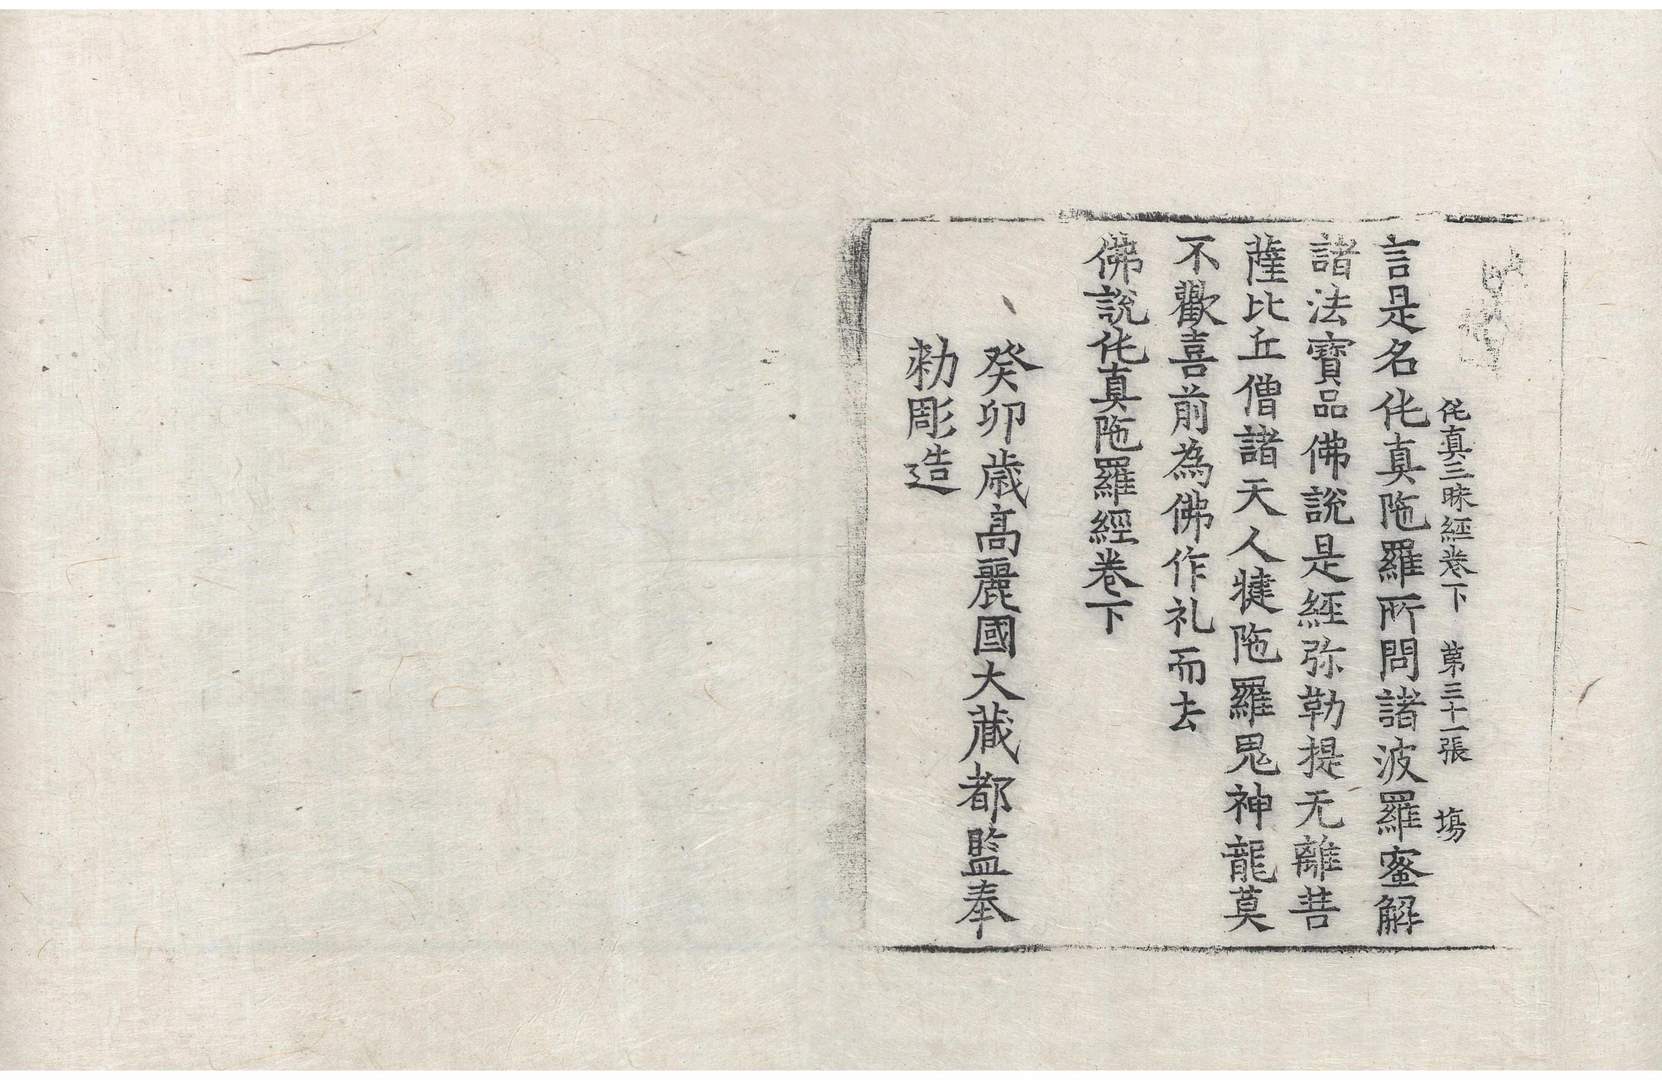 伅真三昧經卷下　第三十一張　塲
言是名伅真陁羅所問諸波羅蜜解
諸法寶品佛說是經弥勒提无離菩
薩比丘僧諸天人揵陁羅鬼神龍莫
不歡喜前為佛作礼而去
佛說伅真陁羅經卷下
癸卯歲高麗國大藏都監奉
勑彫造